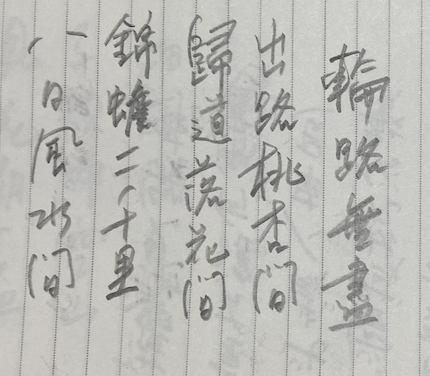 輪路無盡
出路桃杏間
歸道落花間
錦蟾二千里
八日風水間